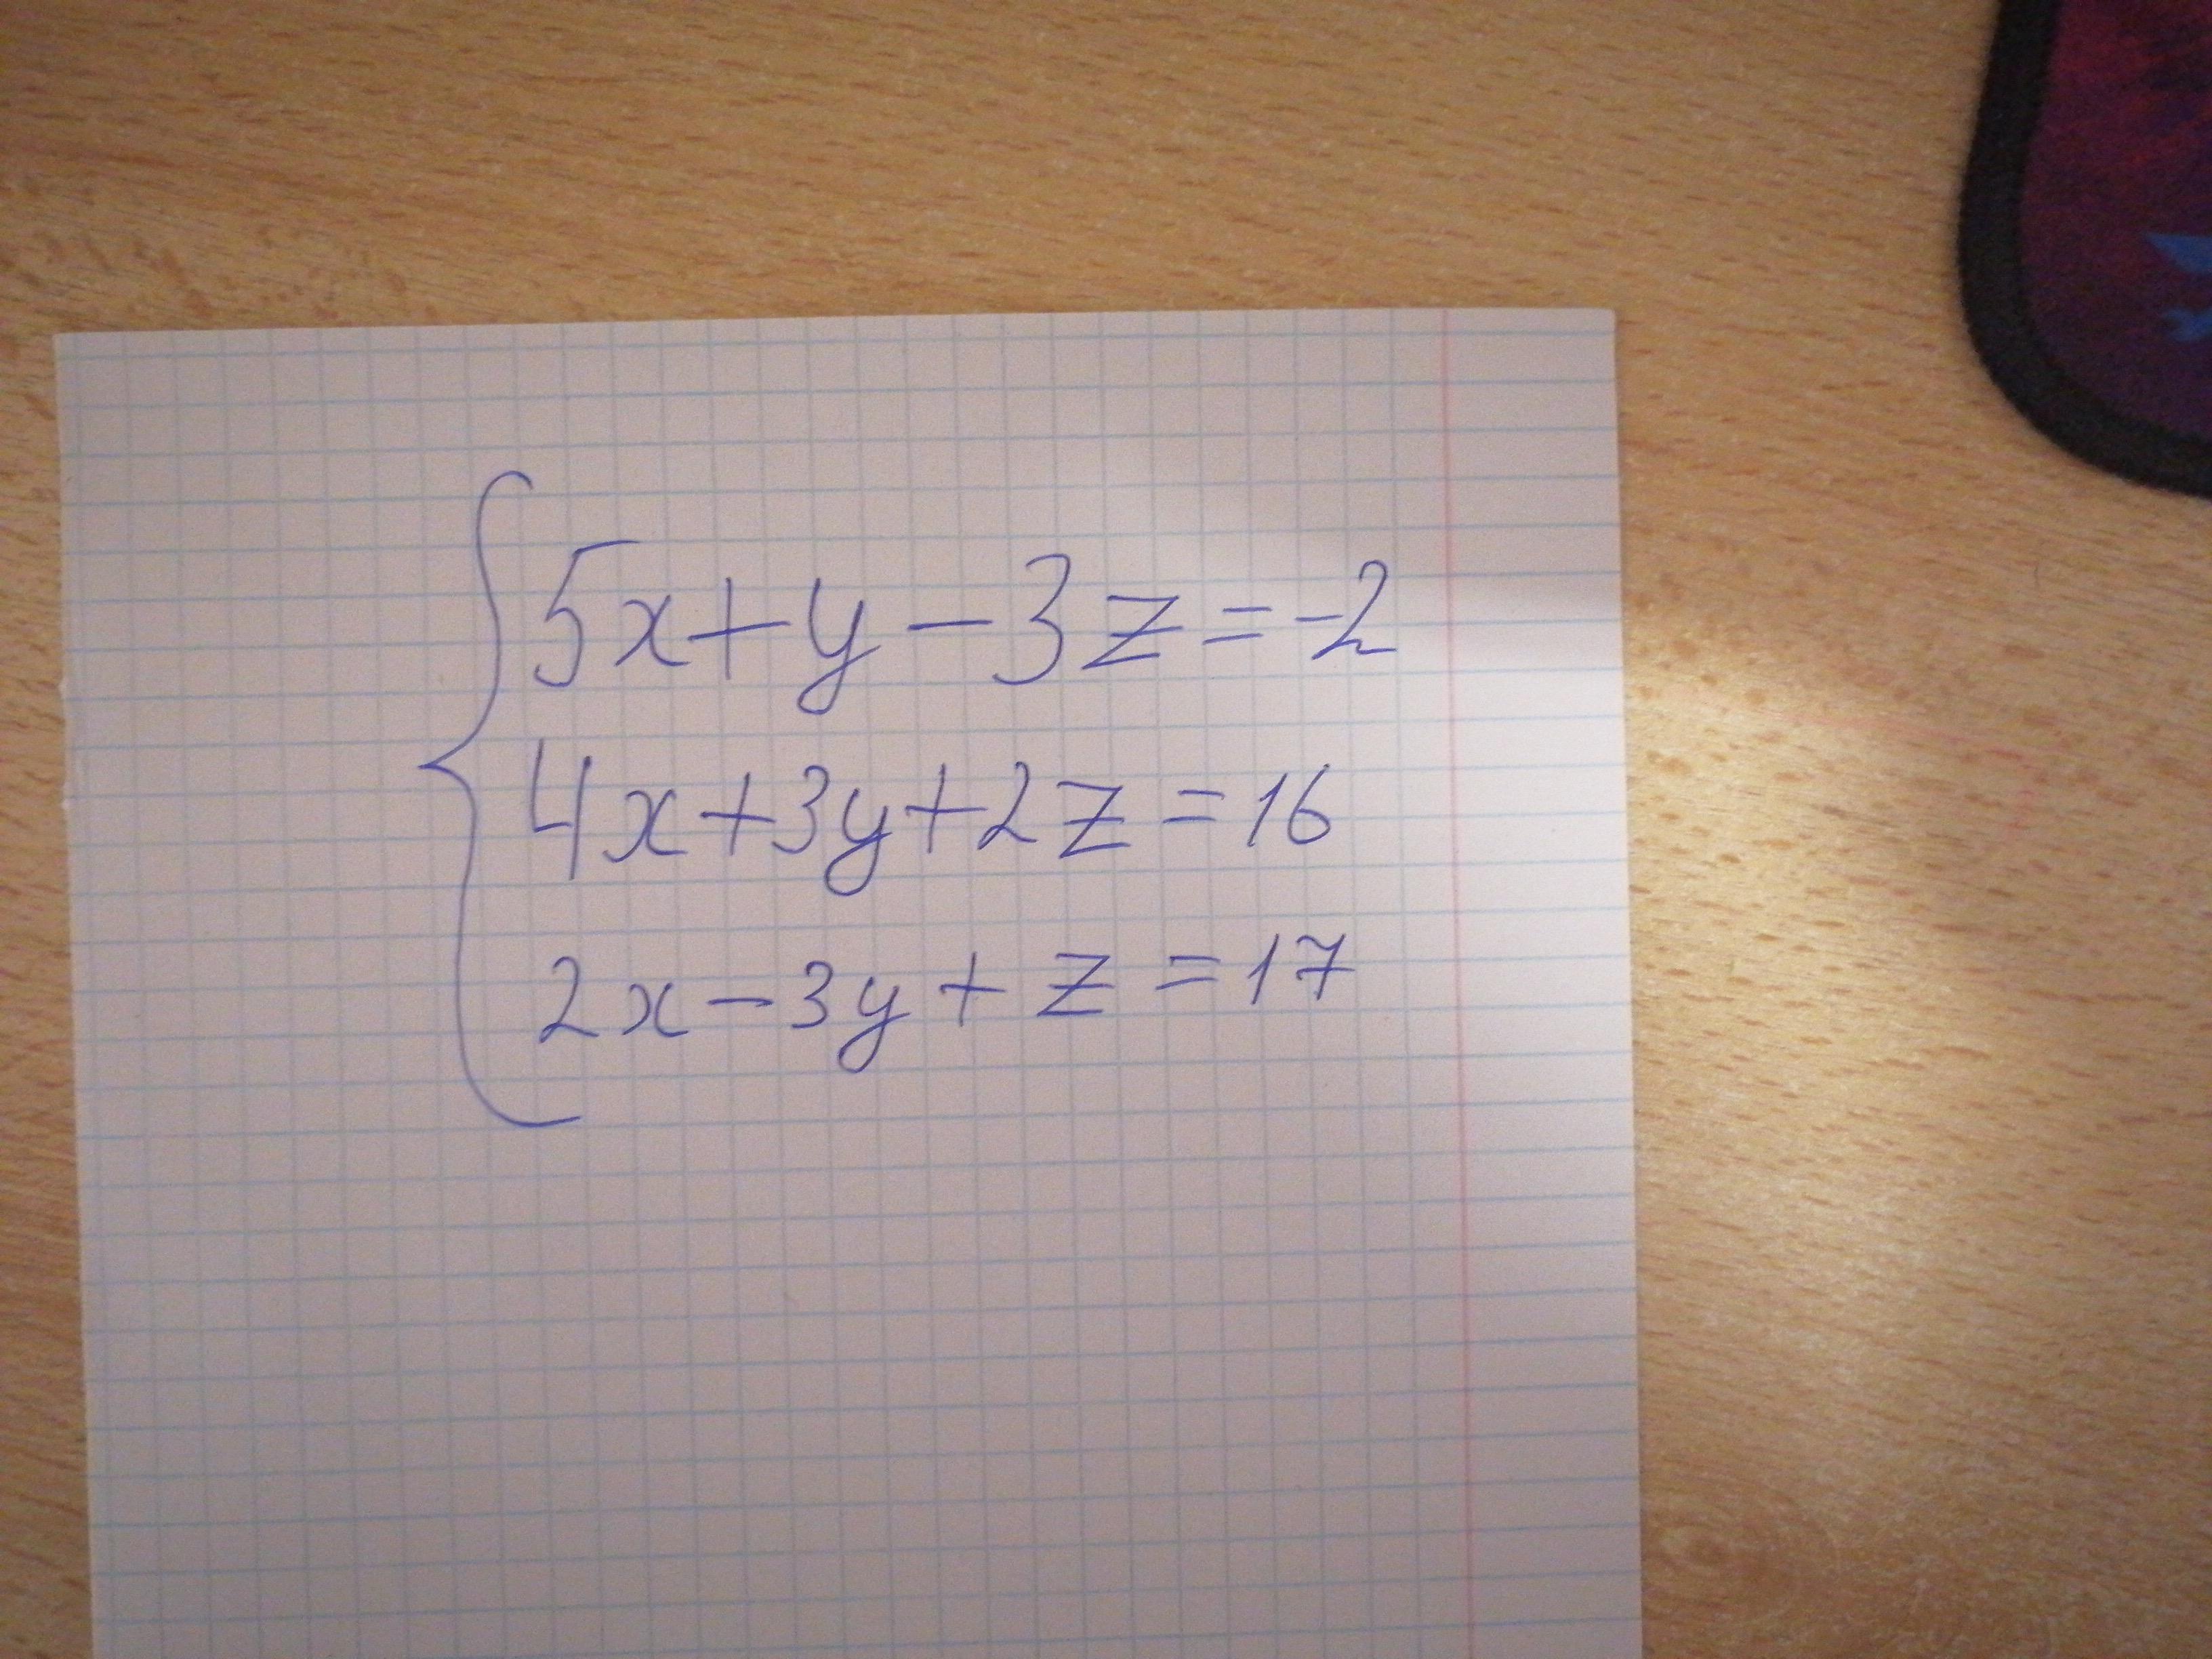 5x+y-3z=-2
4x+3y+2z=16
2x-3y+z=17